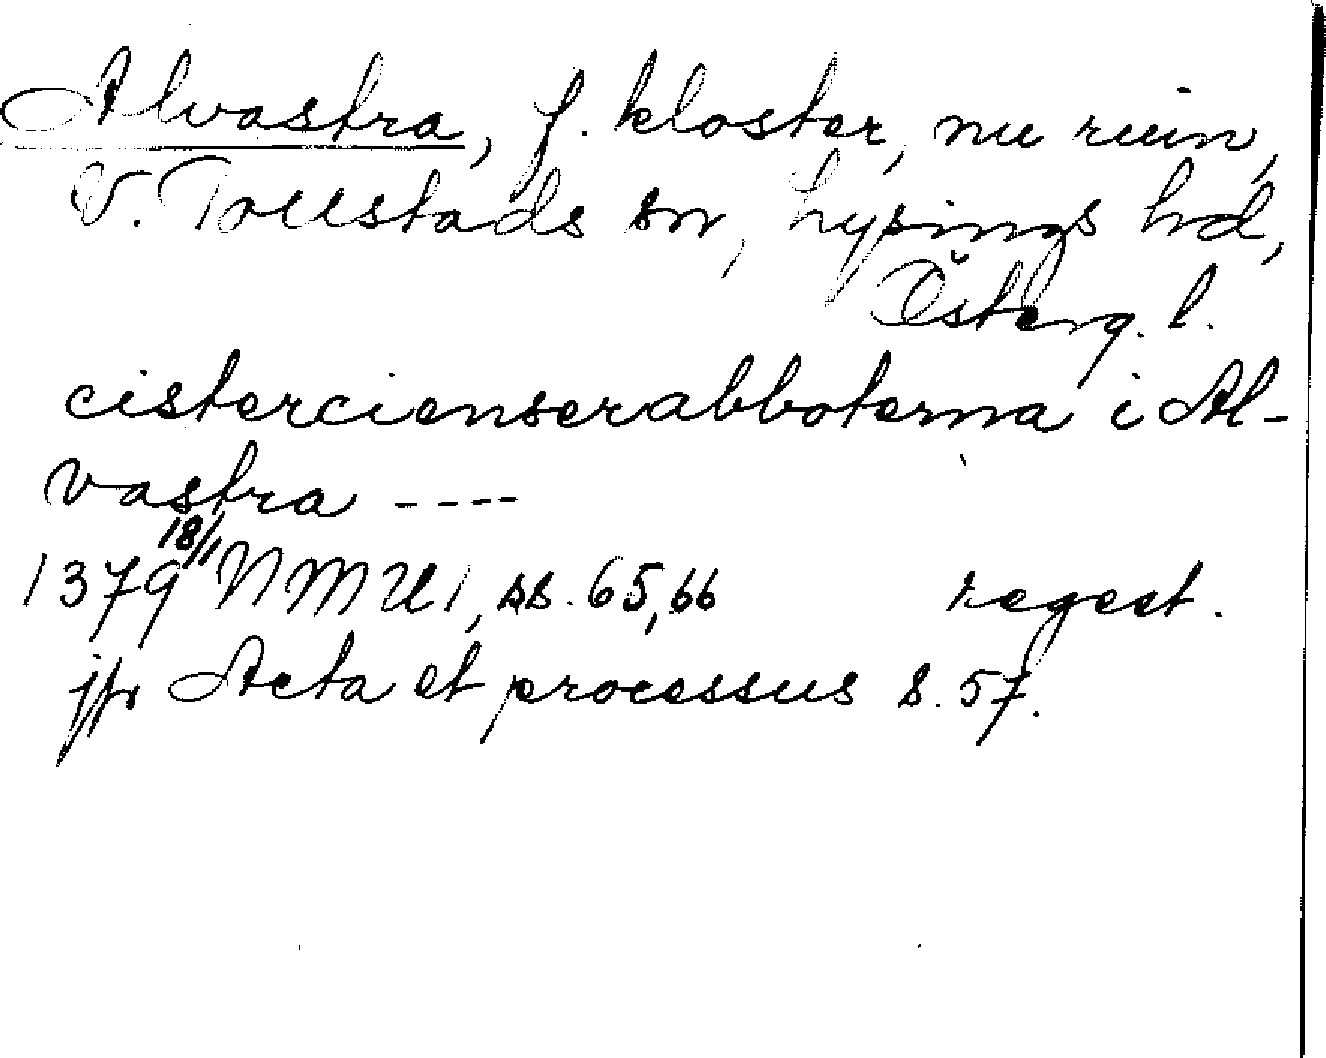 Alvastra, f. kloster, nu ruin,
V. Tollstads sn, Lysings hd,
Österg. l.
cistercienserabboterna i Al-
vastra ----
1379 18/1 NMU 1, ss. 65, 66 regest.
jfr Acta et processus s. 57.